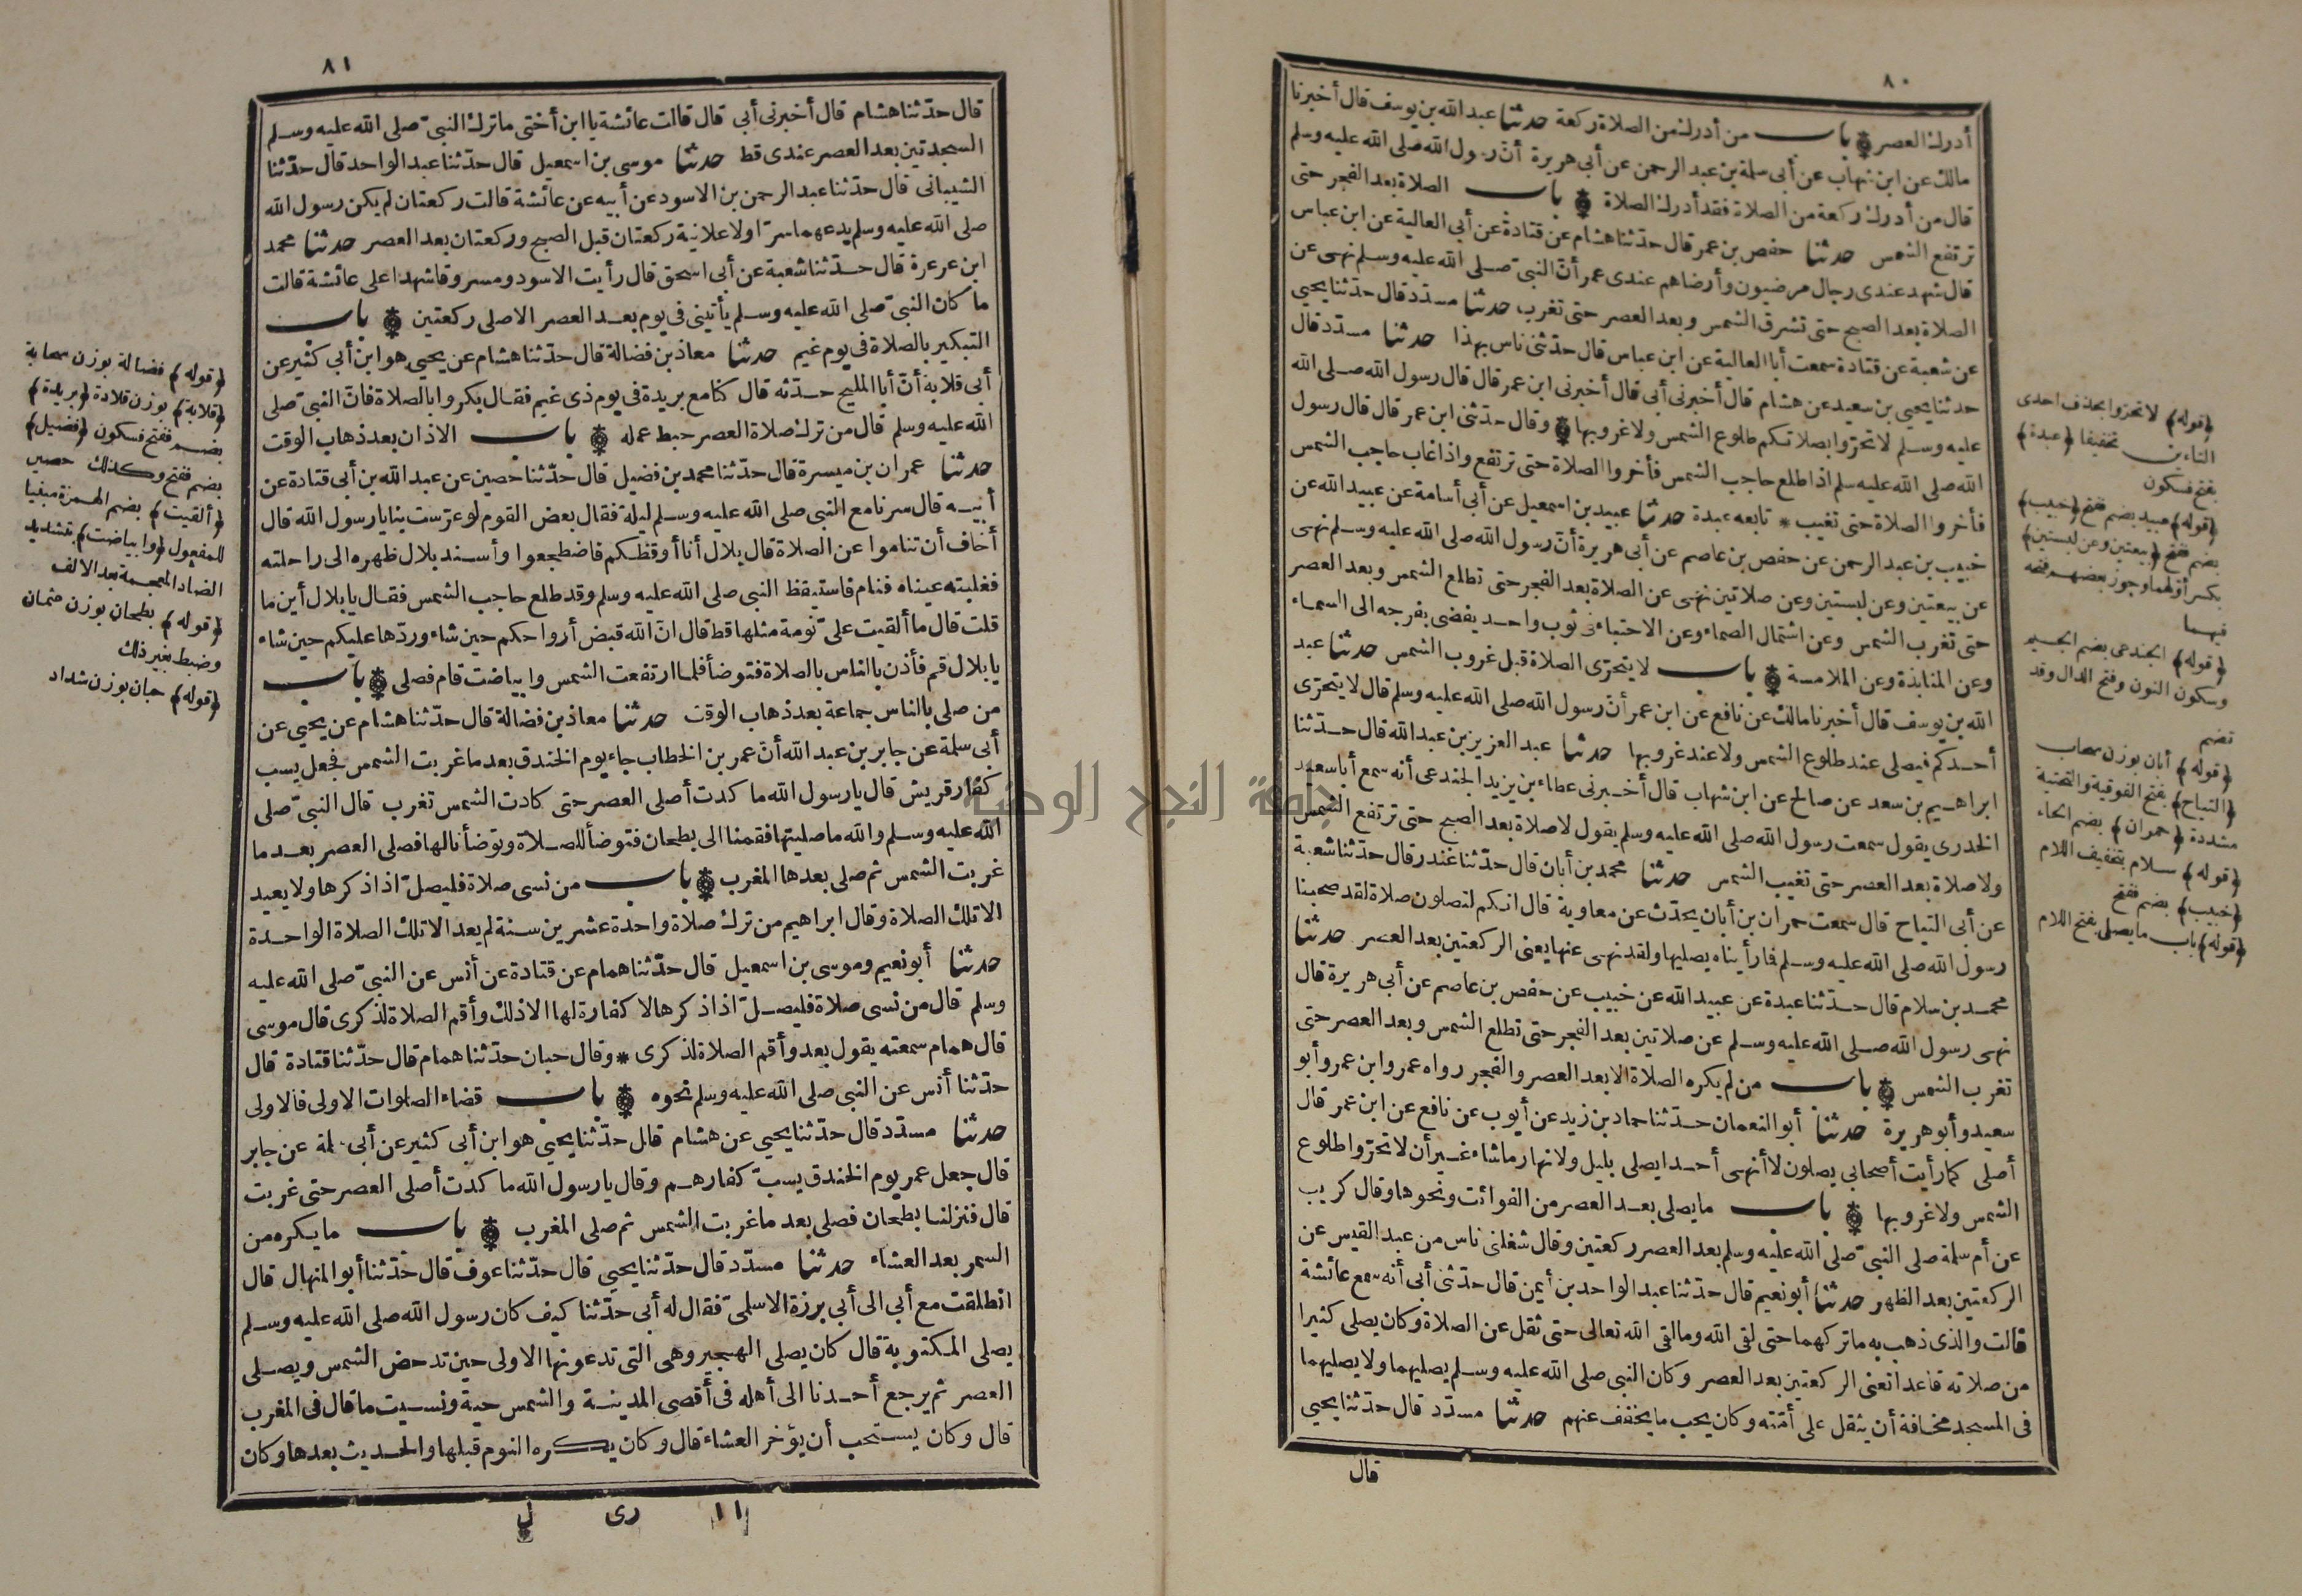 ٨٠
أدرك العصر باب من أدرك من الصلاة ركعة حدثنا عبد الله بن يوسف قال أخبرنا
مالك عن ابن شهاب عن أبى سلمة بن عبد الرحمن عن أبى هريرة أن رسول الله صلى الله عليه وسلم
قال من أدرك ركعة من الصلاة فقد أدرك الصلاة باب الصلاة بعد الفجر حتى
ترتفع الشمس حدثنا حفص بن عمر قال حدّثنا هشام عن قتادة عن أبى العالية عن ابن عباس
قال شهد عندى رجال مرضيون وأرضاهم عندى عمر أنّ النبىّ صلى الله عليه وسلم نهى عن
الصلاة بعد الصبح حتى تشرق الشمس وبعد العصر حتى تغرب حدثنا مسدّد قال حدّثنا يحيى
عن شعبة عن قتادة سمعت أبا العالية عن ابن عباس قال حدّثنى ناس بهذا حدثنا مسدّد قال
حدثنا يحيى بن سعيد عن هشام قال أخبرنى أبى قال أخبرنى ابن عمر قال قال رسول الله صلى الله
عليه وسلم لا تحرّوا بصلاتكم طلوع الشمس ولا غروبها وقال حدّثنى ابن عمر قال قال رسول
الله صلى الله عليه سلم اذا طلع حاجب الشمس فأخروا الصلاة حتى ترتفع واذا غاب حاجب الشمس
فأخروا الصلاة حتى تغيب * تابعه عبدة حدثنا عبيد بن اسمعيل عن أبى أسامة عن عبيد الله عن
خبيب بن عبد الرحمن عن حفص بن عاصم عن أبى هريرة أنّ رسول الله صلى الله عليه وسلم نهى
عن بيعتين وعن لبستين وعن صلاتين نهى عن الصلاة بعد الفجر حتى تطلع الشمس وبعد العصر
حتى تغرب الشمس وعن اشتمال الصماء وعن الاحتباء فى ثوب واحد يفضى بفرجه الى السماء
وعن المنابذة وعن الملامسة باب لا يتحرّى الصلاة قبل غروب الشمس حدثنا عبد
الله بن يوسف قال أخبرنا مالك عن نافع عن ابن عمر أنّ رسول الله صلى الله عليه وسلم قال لا يتحرّى
أحدكم فيصلى عند طلوع الشمس ولا عند غروبها حدثنا عبد العزيز بن عبد الله قال حدّثنا
ابراهيم بن سعد عن صالح عن ابن شهاب قال أخبرنى عطاء بن يزيد الجندعى أنه سمع أبا سعيد
الخدرى يقول سمعت رسول الله صلى الله عليه وسلم يقول لا صلاة بعد الصبح حتى ترتفع الشمس
ولا صلاة بعد العصر حتى تغيب الشمس حدثنا محمد بن أبان قال حدّثنا غندر قال حدّثنا شعبة
عن أبى التياح قال سمعت حمران بن أبان يحدّث عن معاوية قال انكم لتصلون صلاة لقد صحبنا
رسول الله صلى الله عليه وسلم فما رأيناه يصليها ولقد نهى عنها يعنى الركعتين بعد العصر حدثنا
محمد بن سلام قال حدّثنا عبدة عن عبيد الله عن خبيب عن حفص بن عاصم عن أبى هريرة قال
نهى رسول الله صلى الله عليه وسلم عن صلاتين بعد الفجر حتى تطلع الشمس وبعد العصر حتى
تغرب الشمس باب من لم يكره الصلاة الا بعد العصر والفجر رواه عمر وابن عمر وأبو
سعيد وأبو هريرة حدثنا أبو النعمان حدّثنا حماد بن زيد عن أيوب عن نافع عن ابن عمر قال
أصلى كما رأيت أصحابى يصلون لا أنهى أحدا يصلى بليل ولا نهار ما شاء غير أن لا تحرّوا طلوع
الشمس ولا غروبها باب ما يصلى بعد العصر من الفوائت ونحوها وقال كريب
عن أم سلمة صلى النبىّ صلى الله عليه وسلم بعد العصر ركعتين وقال شغلنى ناس من عبد القيس عن
الركعتين بعد الظهر حدثنا أبو نعيم قال حدّثنا عبد الواحد بن أيمن قال حدّثنى أبى أنه سمع عائشة
قالت والذى ذهب به ما تركهما حتى لقى الله وما لقى الله تعالى حتى ثقل عن الصلاة وكان يصلى كثيرا
من صلاته قاعدا تعنى الركعتين بعد العصر وكان النبى صلى الله عليه وسلم يصليهما ولا يصليهما
فى المسجد مخافة أن يثقل على أمّته وكان يحب ما يخفف عنهم حدثنا مسدّد قال حدّثنا يحيى
قال
﴿قوله﴾ لا تحرّوا بحذف احدى
التاءين تخفيفا ﴿عبدة﴾
بفتح فسكون
﴿قوله﴾ عبيد بضم ففتح ﴿خبيب﴾
بضم ففتح ﴿بيعتين وعن لبستين﴾
بكسر أوّلهما وجوز بعضهم فتحه
فيهما
﴿قوله﴾ الجندعى بضم الجيم
وسكون النون وفتح الدال وقد
تضم
﴿قوله﴾ أبان بوزن سحاب
﴿التياح﴾ بفتح الفوقية والتحتية
مشددة ﴿حمران﴾ بضم الحاء
﴿قوله﴾ سلام بتخفيف اللام
﴿خبيب﴾ بضم ففتح
﴿قوله﴾ باب ما يصلى بفتح اللام
٨١
قال حدّثنا هشام قال أخبرنى أبى قال قالت عائشة يا ابن أختى ما ترك النبىّ صلى الله عليه وسلم
السجدتين بعد العصر عندى قط حدثنا موسى بن اسمعيل قال حدّثنا عبد الواحد قال حدّثنا
الشيبانى قال حدّثنا عبد الرحمن بن الاسود عن أبيه عن عائشة قالت ركعتان لم يكن رسول الله
صلى الله عليه وسلم يدعهما سرّا ولا علانية ركعتان قبل الصبح وركعتان بعد العصر حدثنا محمد
ابن عرعرة قال حدّثنا شعبة عن أبى اسحق قال رأيت الاسود ومسروقا شهدا على عائشة قالت
ما كان النبىّ صلى الله عليه وسلم يأتينى فى يوم بعد العصر الا صلى ركعتين باب
التبكير بالصلاة فى يوم غيم حدثنا معاذ بن فضالة قال حدّثنا هشام عن يحيى هو ابن أبى كثير عن
أبى قلابة أنّ أبا المليح حدّثه قال كنا مع بريدة فى يوم ذى غيم فقال بكروا بالصلاة فانّ النبىّ صلى
الله عليه وسلم قال من ترك صلاة العصر حبط عمله باب الاذان بعد ذهاب الوقت
حدثنا عمران بن ميسرة قال حدّثنا محمد بن فضيل قال حدّثنا حصين عن عبد الله بن أبى قتادة عن
أبيه قال سرنا مع النبى صلى الله عليه وسلم ليلة فقال بعض القوم لو عرّست بنا يا رسول الله قال
أخاف أن تناموا عن الصلاة قال بلال أنا أوقظكم فاضطجعوا وأسند بلال ظهره الى راحلته
فغلبته عيناه فنام فاستيقظ النبى صلى الله عليه وسلم وقد طلع حاجب الشمس فقال يا بلال أين ما
قلت قال ما ألقيت علىّ نومة مثلها قط قال انّ الله قبض أرواحكم حين شاء وردّها عليكم حين شاء
يا بلال قم فأذن بالناس بالصلاة فتوضأ فلما ارتفعت الشمس وابياضت قام فصلى باب
من صلى بالناس جماعة بعد ذهاب الوقت حدثنا معاذ بن فضالة قال حدّثنا هشام عن يحيى عن
أبى سلمة عن جابر بن عبد الله أنّ عمر بن الخطاب جاء يوم الخندق بعد ما غربت الشمس فجعل يسب
كفار قريش قال يا رسول الله ما كدت أصلى العصر حتى كادت الشمس تغرب قال النبىّ صلى
الله عليه وسلم والله ما صليتها فقمنا الى بطحان فتوضأ للصلاة وتوضأنا لها فصلى العصر بعد ما
غربت الشمس ثم صلى بعدها المغرب باب من نسى صلاة فليصلّ اذا ذكرها ولا يعيد
الا تلك الصلاة وقال ابراهيم من ترك صلاة واحدة عشرين سنة لم يعد الا تلك الصلاة الواحدة
حدثنا أبو نعيم وموسى بن اسمعيل قال حدّثنا همام عن قتادة عن أنس عن النبىّ صلى الله عليه
وسلم قال من نسى صلاة فليصلّ اذا ذكرها لا كفارة لها الا ذلك وأقم الصلاة لذكرى قال موسى
قال همام سمعته يقول بعد وأقم الصلاة لذكرى * وقال حبان حدّثنا همام قال حدّثنا قتادة قال
حدّثنا أنس عن النبى صلى الله عليه وسلم نحوه باب قضاء الصلوات الاولى فالاولى
حدثنا مسدّد قال حدّثنا يحيى عن هشام قال حدّثنا يحيى هو ابن أبى كثير عن أبى سلمة عن جابر
قال جعل عمر يوم الخندق يسبّ كفارهم وقال يا رسول الله ما كدت أصلى العصر حتى غربت
قال فنزلنا بطحان فصلى بعد ما غربت الشمس ثم صلى المغرب باب ما يكره من
السمر بعد العشاء حدثنا مسدّد قال حدّثنا يحيى قال حدّثنا عوف قال حدّثنا أبو المنهال قال
انطلقت مع أبى الى أبى برزة الاسلمىّ فقال له أبى حدّثنا كيف كان رسول الله صلى الله عليه وسلم
يصلى المكتوبة قال كان يصلى الهجير وهى التى تدعونها الاولى حين تدحض الشمس ويصلى
العصر ثم يرجع أحدنا الى أهله فى أقصى المدينة والشمس حية ونسيت ما قال فى المغرب
قال وكان يستحب أن يؤخر العشاء قال وكان يكره النوم قبلها والحديث بعدها وكان
١١ رى ل
﴿قوله﴾ فضالة بوزن سحابة
﴿قلابة﴾ بوزن قلادة ﴿بريدة﴾
بضم ففتح فسكون ﴿فضيل﴾
بضم ففتح وكذلك حصين
﴿ألقيت﴾ بضم الهمزة مبنيا
للمفعول ﴿وابياضت﴾ بتشديد
الضاد المعجمة بعد الالف
﴿قوله﴾ بطحان بوزن عثمان
وضبط بغير ذلك
﴿قوله﴾ حبان بوزن شداد
جامعة النجاح الوطنية